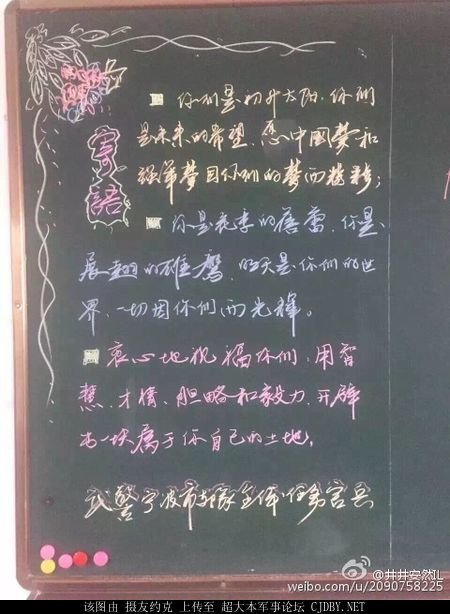 寄語
你们是初升太阳.你们
是未来的希望.愿中国夢和
强軍夢因你们的夢而精彩;
你是花季的蓓蕾.你是
展翅的雄鹰.明天是你们的世
界.一切因你们而光輝。
衷心地祝福你们.用智
慧.才情.胆略和毅力.开辟
出一块属于你自己的土地。
武警宁波市部队全体任务官兵
@井井安然儿
weibo.com/u/2090758225
该图由 摄友约克 上传至 超大本军事论坛 CJDBY.NET